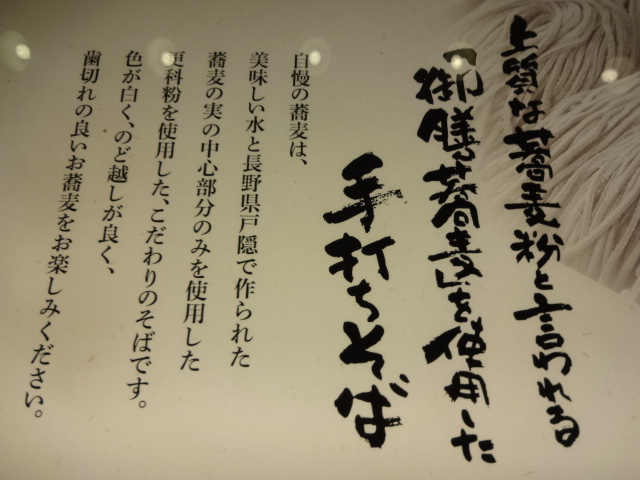 上質な蕎麦粉と言われる
「御膳蕎麦」を使用した
手打ちそば
自慢の蕎麦は、
美味しい水と長野県戸隠で作られた
蕎麦の実の中心部分のみを使用した
更科粉を使用した、こだわりのそばです。
色が白く、のど越しが良く、
歯切れの良いお蕎麦をお楽しみください。